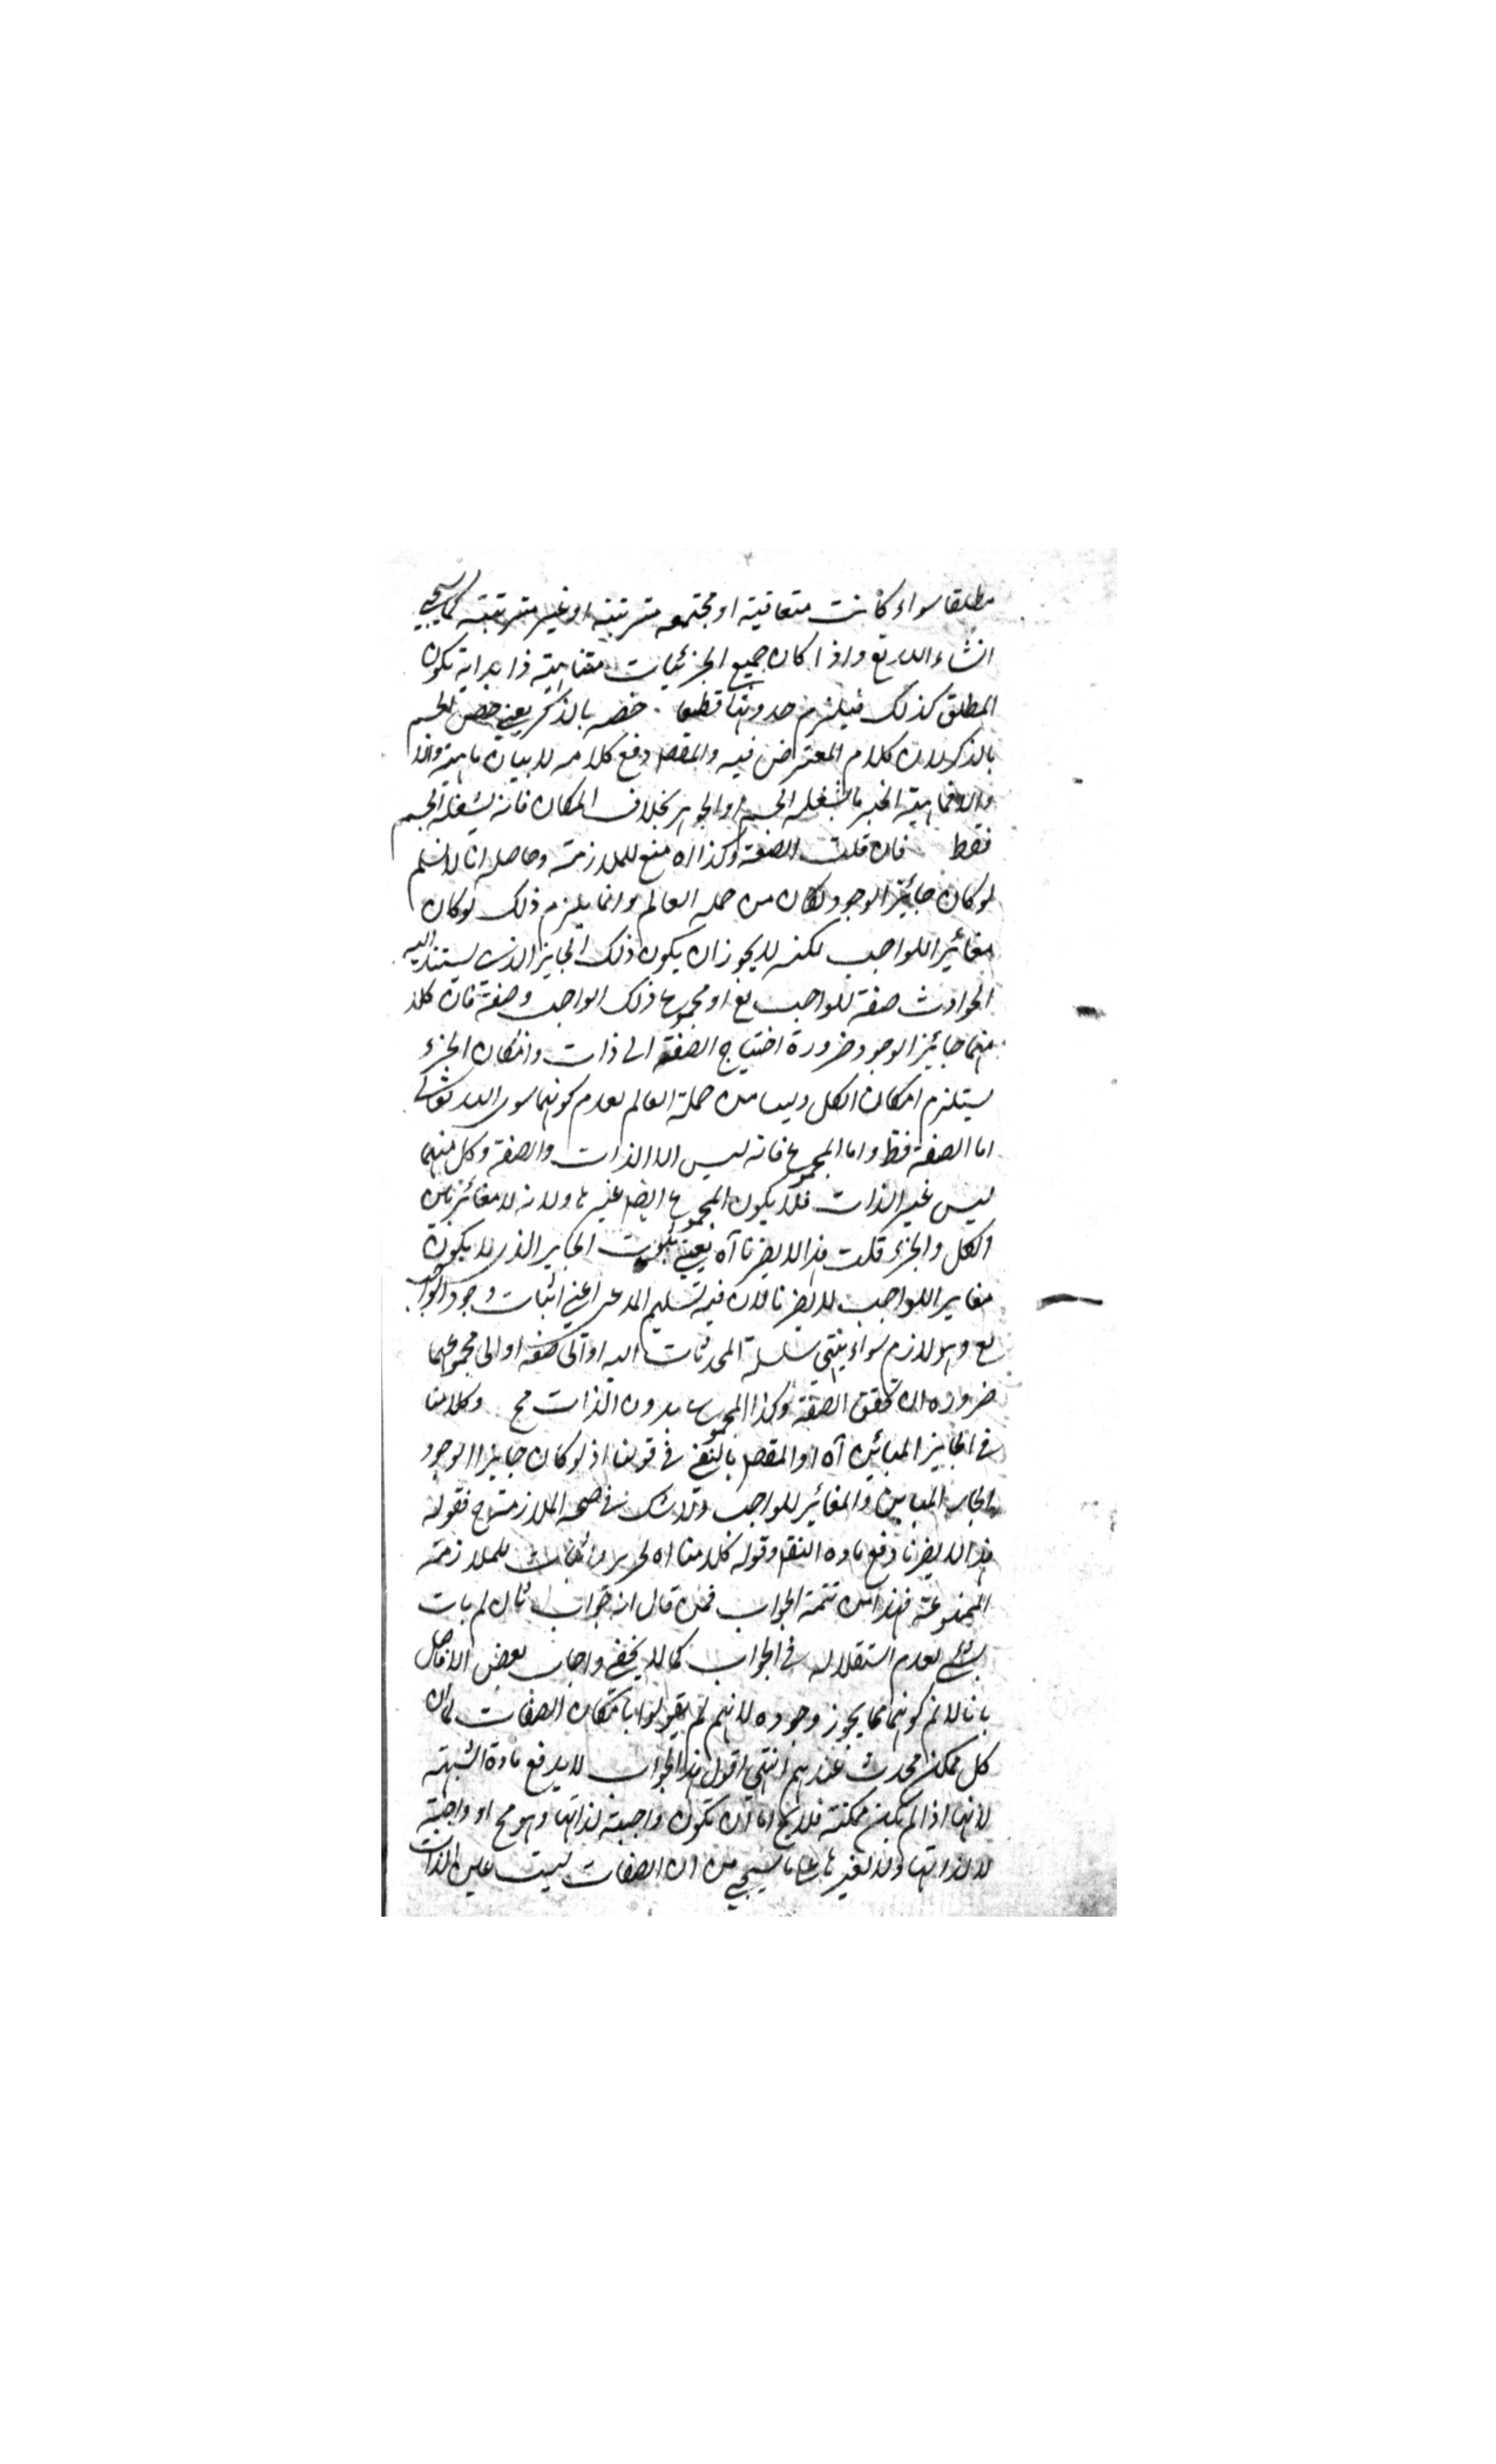 مطلقا سواء كانت متعاقبة او مجتمعه مترتبة او غير مترتبة كما سيجيئ
انشاء الله تع واذا كان جميع الجزئيات متناهية ذا بداية يكون
المطلق كذلك فيلزم حدوثها قطعا خصه بالذكر يعني خص الجسم
بالذكر لان كلام المعترض فيه والمقصد دفع كلامه لا بيان ماهيته
والا فماهية الحيز ما يشغله الجسم او الجوهر بخلاف المكان فانه يشغله الجسم
فقط فان قلت الصفة وكذا اه منع للملازمة وحاصله انا لا نسلم
لو كان جائز الوجود لكان من جملة العالم وانما يلزم ذلك لو كان
مغائرا للواجب لكنه لا يجوز ان يكون ذلك الجايز الذى يستند اليه
الحوادث صفة للواجب تع او مجموع ذلك الواجب وصفة فان كلا
منهما جائز الوجود ضرورة احتياج الصفة الى ذات وامكان الجزء
يستلزم امكان الكل وليسا من جملة العالم لعدم كونهما سوى الله تعالى
اما الصفة فظ واما المجموع فانه ليس الا الذات والصفة وكل منهما
ليس غير الذات فلا يكون المجموع ايضا غيرها ولانه لا مغائرة بين
الكل والجزء قلت هذا لا يضرنا آه يعني ثبوت الجايز الذى لا يكون
مغايرا للواجب لا يضرنا لان فيه تسليم المدعى اعني اثبات وجود الواجب
تع وهو لازم سواء ينتهي سلسلة المحدثات اليه او الى صفة او الى مجموعهما
ضروره ان تحقق الصفة وكذا المجموع بدون الذات مح وكلامنا
في الجايز المبائن آه او المقصد بالنفي في قولنا اذ لو كان جايز الوجود
الجايز المباين والمغائر للواجب ولا شك في صحة الملازمة ح فقوله
هذا لا يضرنا دفع ماده النقض وقوله كلامنا اه تحرير واثبات للملازمة
الممنوعة فهذا من تتمة الجواب فمن قال انه جواب ثان لم يات
بشئ لعدم استقلاله في الجواب كما لا يخفى واجاب بعض الافاضل
بانا لا نم كونهما مما يجوز وجوده لانهم لم يقولوا بامكان الصفات لان
كل ممكن محدث عندهم انتهى اقول هذا الجواب لا يدفع مادة الشبهة
لانها اذا لم يكن ممكنة فلا يخ اما ان تكون واجبة لذاتها وهو مح او واجبة
لا لذاتها ولا لغيرها على ما سيجئ من ان الصفات ليست عين الذات